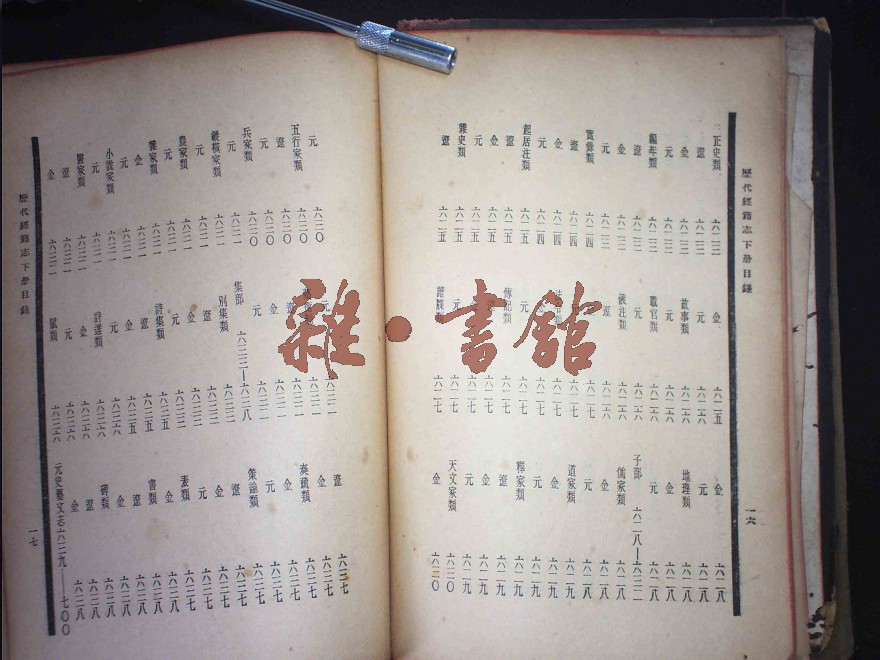 歷代經籍志下册目錄
一六
正史類 六二三
遼 六二三
金 六二三
元 六二三
編年類 六二三
金 六二三
元 六二三
實錄類 六二四
遼 六二四
金 六二四
元 六二四
起居注類 六二五
遼 六二五
金 六二五
元 六二五
雜史類 六二五
遼 六二五
金 六二五
元 六二六
故事類 六二六
元 六二六
職官類 六二六
元 六二六
儀注類 六二六
遼 六二六
傳記類 六二七
元 六二七
譜牒類 六二七
金 六二八
元 六二八
地理類 六二八
金 六二八
元 六二八
子部 六二八—六三二
儒家類 六二八
金 六二八
元 六二九
道家類 六二九
金 六二九
元 六二九
釋家類 六二九
遼 六二九
金 六二九
元 六二九
天文家類 六三〇
金 六三〇
元 六三〇
五行家類 六三〇
遼 六三〇
元 六三〇
兵家類 六三〇
元 六三一
縱橫家類 六三一
元 六三一
農家類 六三一
元 六三一
雜家類 六三一
金 六三一
元 六三一
小說家類 六三一
元 六三一
醫家類 六三一
遼 六三一
金 六三一
元
遼
金
元
集部 六三二—六三八
別集類
遼
金
元
詩集類 六三五
元 六三五
金 六三五
詩選類 六三六
金 六三六
元 六三六
賦類 六三六
遼 六三七
奏議類 六三七
金 六三七
元 六三七
遼 六三七
策論類 六三七
金 六三七
元 六三七
表類 六三七
金 六三八
書類 六三八
遼 六三八
金 六三八
碑類 六三八
遼 六三八
金 六三八
元史藝文志六三九——七〇〇
歷代經籍志下册目錄
一七
雜·書館